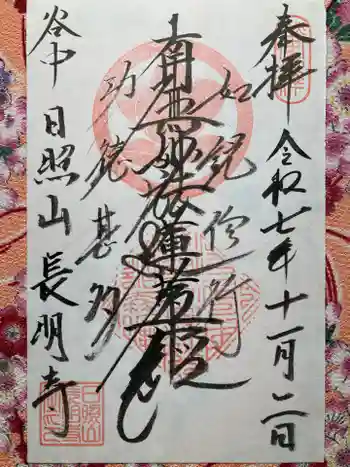 奉拝 令和七年十一月二日
如説修行
南無妙法蓮華経
功徳甚多
谷中 日照山 長明寺